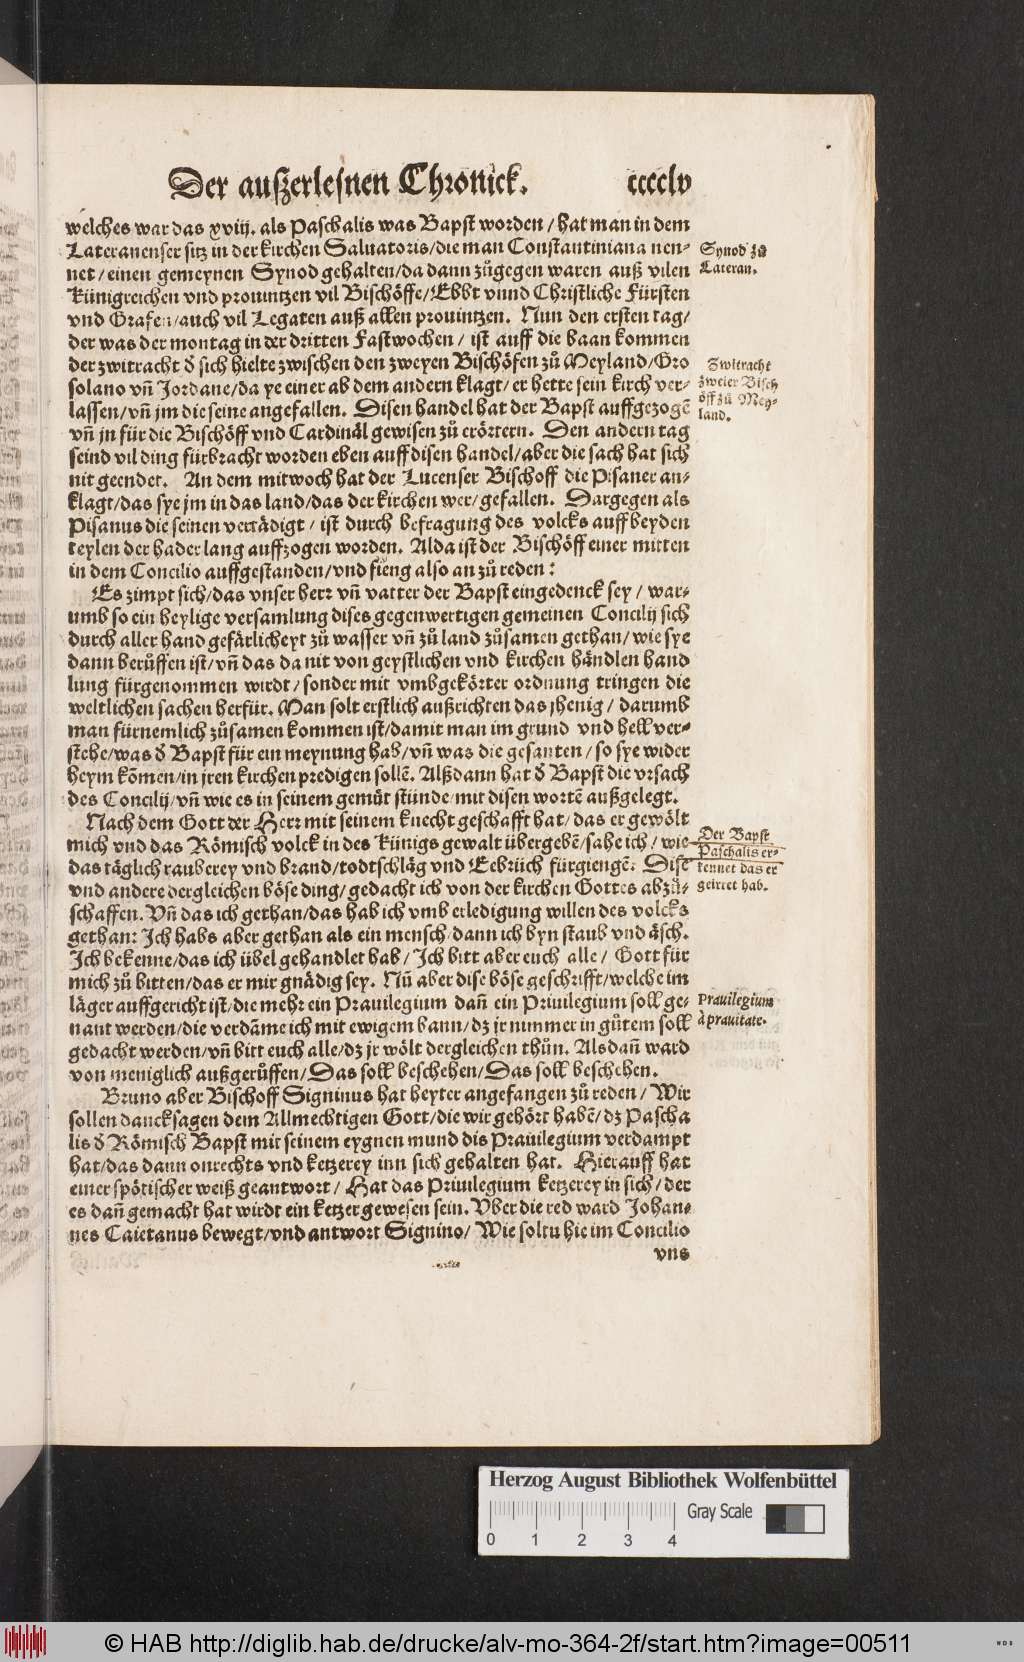 Der außerlesnen Chronick. ccccclv
welches war das xviij. als Paschalis was Bapst worden / hat man in dem
Lateranenser sitz in der kirchen Saluatoris/die man Constantiniana nen-
net/einen gemeynen Synod gehalten/da dann zůgegen waren auß vilen
Künigreichen vnd prouintzen vil Bischöffe/Ebbt vnnd Christliche Fürsten
vnd Grafen/auch vil Legaten auß allen prouintzen. Nun den ersten tag/
der was der montag in der dritten Fastwochen / ist auff die baan kommen
der zwitracht d̾ sich hielte zwischen den zweyen Bischöfen zů Meyland/Gro
solano vñ Jordane/da ye einer ab dem andern klagt/er hette sein kirch ver-
lassen/vñ jm die seine angefallen. Disen handel hat der Bapst auffgezogẽ
vñ jn für die Bischöff vnd Cardinäl gewisen zů erörtern. Den andern tag
seind vil ding fürbracht worden eben auff disen handel/aber die sach hat sich
nit geendet. An dem mitwoch hat der Lucenser Bischoff die Pisaner an-
klagt/das sye jm in das land/das der kirchen wer/gefallen. Dargegen als
Pisanus die seinen vertädigt / ist durch befragung des volcks auff beyden
teylen der hader lang auffzogen worden. Alda ist der Bischöff einer mitten
in dem Concilio auffgestanden/vnd fieng also an zů reden:
Es zimpt sich/das vnser herr vñ vatter der Bapst eingedenck sey / war-
umb so ein heylige versamlung dises gegenwertigen gemeinen Concilij sich
durch aller hand gefärlicheyt zů wasser vñ zů land zůsamen gethan/wie sye
dann berůffen ist/vñ das da nit von geystlichen vnd kirchen händlen hand
lung fürgenommen wirdt/sonder mit vmbgekörter ordnung tringen die
weltlichen sachen herfür. Man solt erstlich außrichten das jhenig / darumb
man fürnemlich zůsamen kommen ist/damit man im grund vnd hell ver-
stehe/was d̾ Bapst für ein meynung hab/vñ was die gesanten / so sye wider
heym kõmen/in jren kirchen predigen sollẽ. Alßdann hat d̾ Bapst die vrsach
des Concilij/vñ wie es in seinem gemüt stünde/mit disen wortẽ außgelegt.
Nach dem Gott der Herr mit seinem knecht geschafft hat/das er gewölt
mich vnd das Römisch volck in des Künigs gewalt übergebẽ/sahe ich / wie
das täglich rauberey vnd brand/todtschläg vnd Eebrüch fürgiengẽ. Dise
vnd andere dergleichen böse ding/gedacht ich von der kirchen Gottes abzů-
schaffen. Vñ das ich gethan/das hab ich vmb erledigung willen des volcks
gethan: Ich habs aber gethan als ein mensch/dann ich byn staub vnd äsch.
Ich bekenne/das ich übel gehandlet hab/Ich bitt aber euch alle / Gott für
mich zů bitten/das er mir gnädig sey. Nũ aber dise böse geschrifft/welche im
läger auffgericht ist/die mehr ein Prauilegium dañ ein Priuilegium soll ge-
nant werden/die verdãme ich mit ewigem bann/dz jr nimmer in gůtem soll
gedacht werden/vñ bitt euch alle/dz jr wölt dergleichen thůn. Als dañ ward
von meniglich außgerůffen/Das soll beschehen/Das soll beschehen.
Bruno aber Bischoff Signinus hat heyter angefangen zů reden / Wir
sollen dancksagen dem Allmechtigen Gott/die wir gehört habẽ/dz Pascha
lis d̾ Römisch Bapst mit seinem eygnen mund dis Prauilegium verdampt
hat/das dann onrechts vnd ketzerey inn sich gehalten hat. Hierauff hat
einer spötischer weiß geantwort / Hat das Priuilegium ketzerey in sich/der
es dañ gemacht hat wirdt ein ketzer gewesen sein. Vber die red ward Johan-
nes Caietanus bewegt/vnd antwort Signino/ Wie soltu hie im Concilio
vns
Synod zů
Lateran.
Zwitracht
zweier Bisch
öff zů Mey-
land.
Der Bapst
Paschalis er-
kennet das er
geirret hab.
Prauilegium
à prauitate.
Herzog August Bibliothek Wolfenbüttel
Gray Scale
0 1 2 3 4
© HAB http://diglib.hab.de/drucke/alv-mo-364-2f/start.htm?image=00511